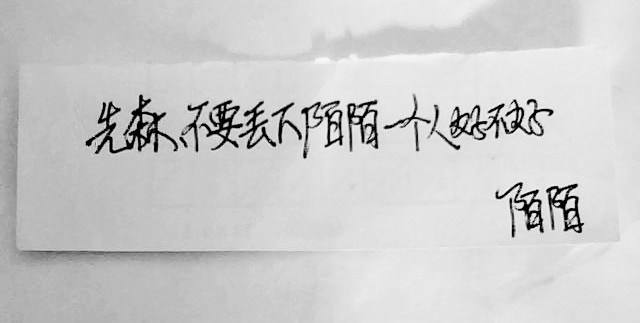 先森、不要丢下陌陌一个人好不好
陌陌